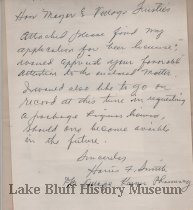 Hon Mayor & Village Trustees
Attached please find my
application for beer license.
would appreciate your favorable
attention to the enclosed matter.
I would also like to go on
record at this time in requesting
a package liquor license,
should one become available
in the future.
Sincerely
F. Smith
Pharmacy
Lake Bluff History Museum